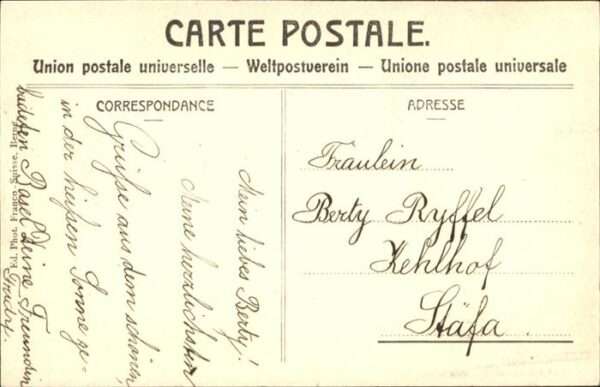 CARTE POSTALE.
Union postale universelle — Weltpostverein — Unione postale universale
CORRESPONDANCE
ADRESSE
Mein liebes Berty!
Meine herzlichsten
Grüße aus dem schönen,
in der heißen Sonne ge-
badeten Basel Deine Freundin
Trudy.
Fräulein
Berty Ryffel
Kehlhof
Stäfa.
Ed. Phot. Franco-Suisse, Berne